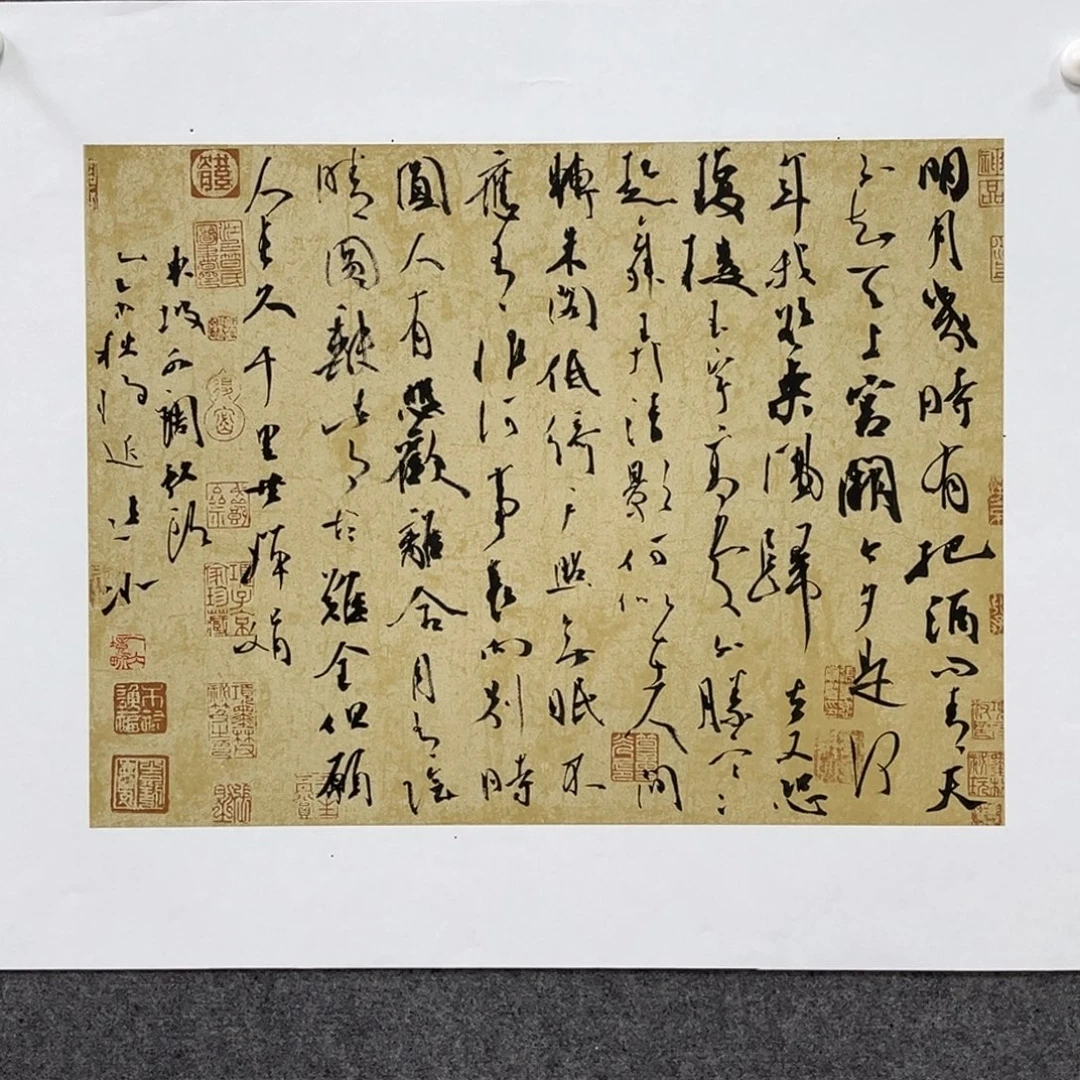 明月幾時有把酒問青天
不知天上宮闕今夕是何
年我欲乘風歸去又恐
瓊樓玉宇高處不勝寒
起舞弄清影何似在人間
轉朱閣低綺戶照無眠不
應有恨何事長向別時
圓人有悲歡離合月有陰
晴圓缺此事古難全但願
人長久千里共嬋娟
東坡水調歌頭
乙未秋